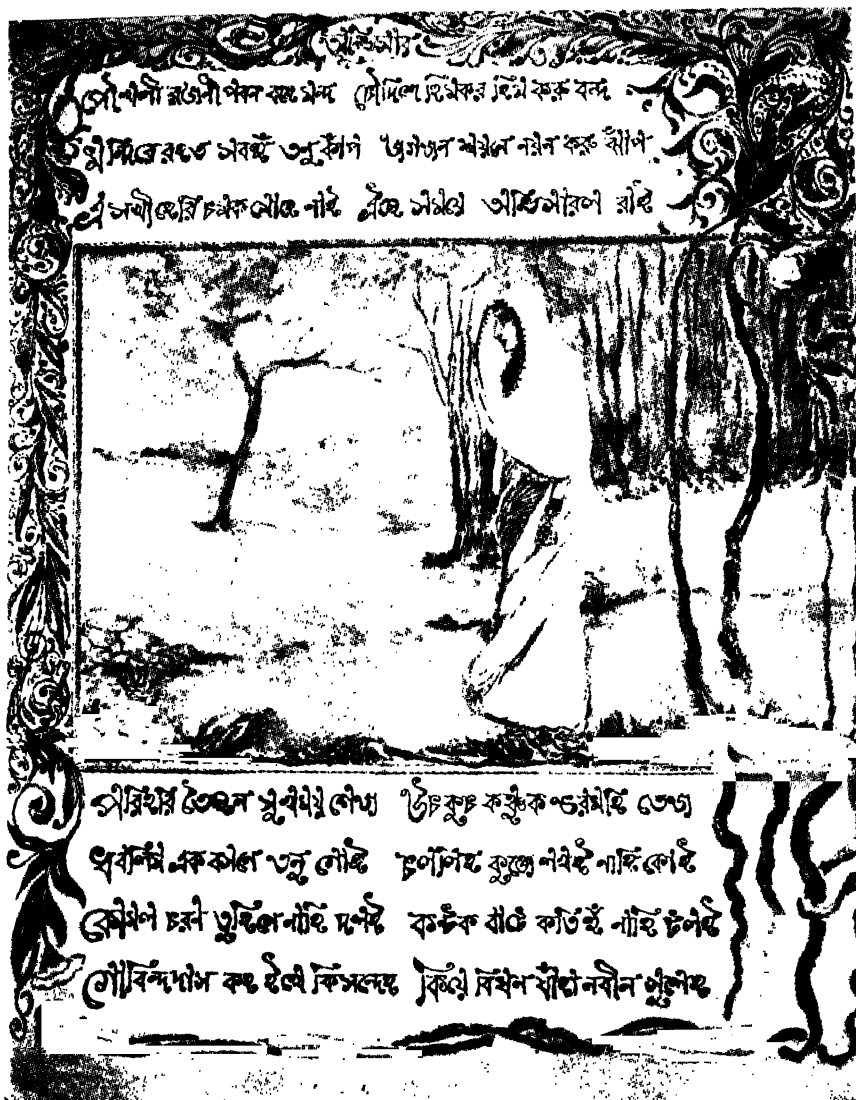 অভিসার
পৌখলী রজনী পবন বহে মন্দ চৌদিশে হিমকর হিম করু বন্দ
মন্দিরে রহত সবহুঁ তনু কাঁপ জগজন শয়নে নয়ন করু ঝাঁপ
এ সখী হেরি চমক মোহে লাই ঐছে সময়ে অভিসারল রাই
পরিহরি তৈছন সুখময় শেজ উচকুচ কঞ্চুক ভরমহি তেজ
ধবলিম এক বসনে তনু গোই চললিহ কুঞ্জে লখই নাহি কোই
কোমল চরণ তুহিনে নাহি দলই কন্টক বাটে কতিহুঁ নাহি টলই
গোবিন্দদাস কহ ইথে কি সন্দেহ কিয়ে বিঘন যাঁহা নবীন সুলেহ